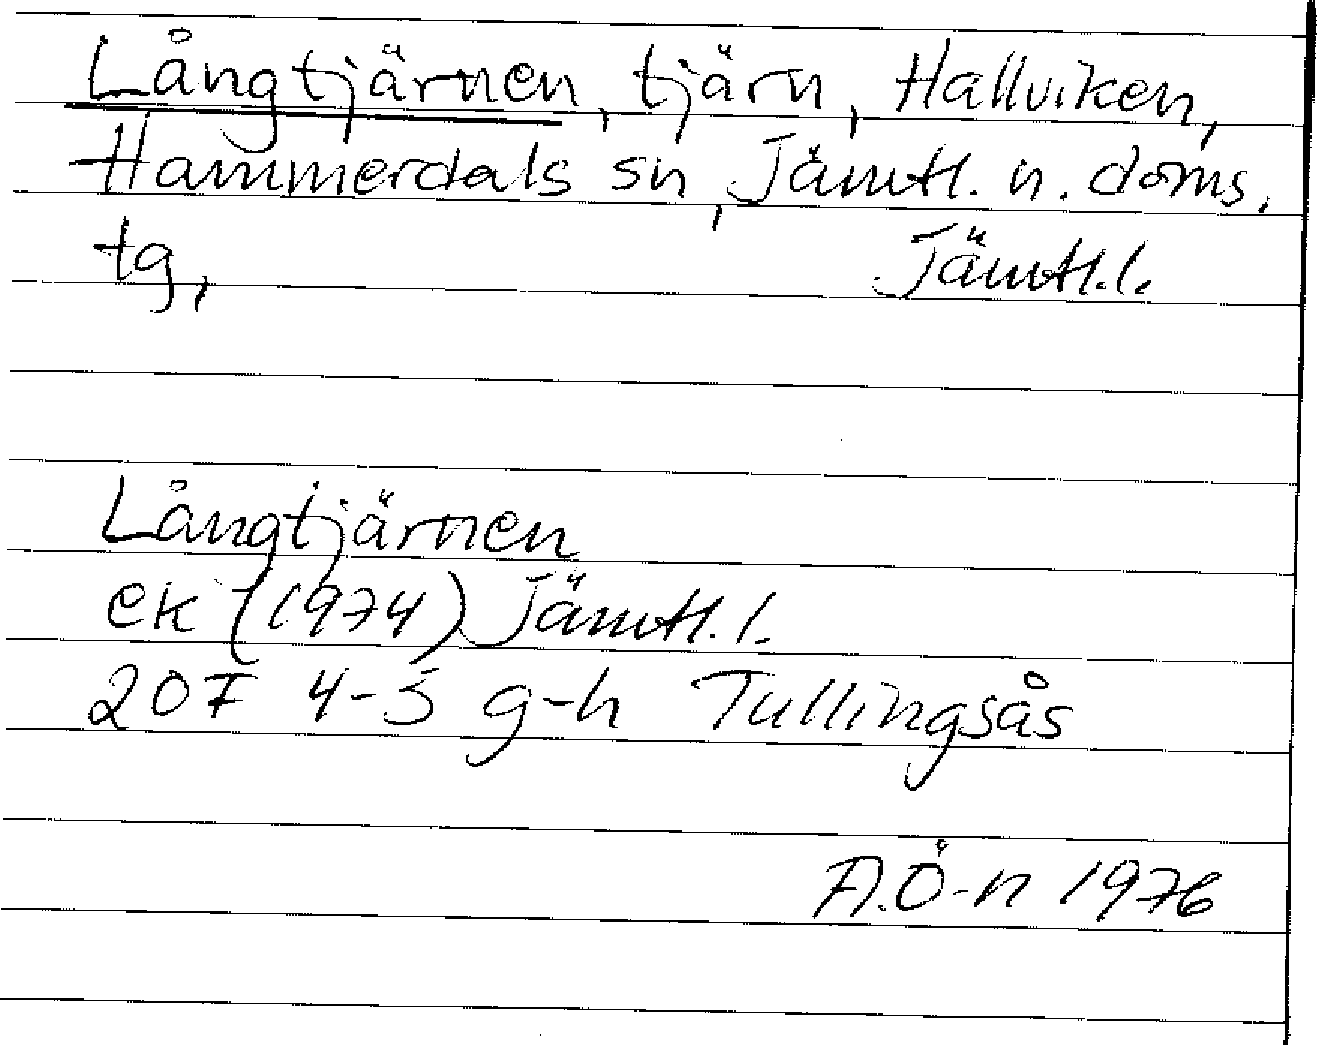 Långtjärnen, tjärn, Hallviken,
Hammerdals sn, Jämtl. n. doms.
tg, Jämtl. l.
Långtjärnen
ek (1974) Jämtl. l.
20F 4-5 g-h Tullingsås
A.Ö-n 1976